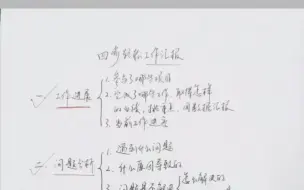 四步轻松工作汇报
一、工作进展
1. 参与了哪些项目
2. 完成了哪些工作，取得怎样
的业绩，挑重点，用数据汇报
3. 当前工作进度
二、问题分析
1. 遇到什么问题
2. 什么原因导致的
3. 问题是不解决
怎么解决的